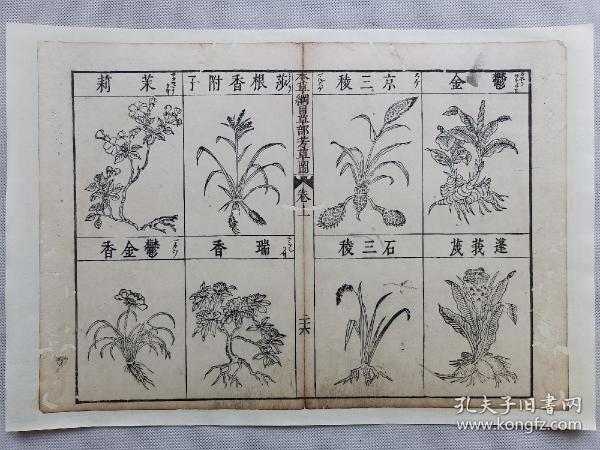 鬱金
京三稜
蓬莪茂
石三稜
本草綱目草部芳草圖
卷之上
二六
莎根香附子
茉莉
瑞香
鬱金香
孔夫子旧書网
www.kongfz.com